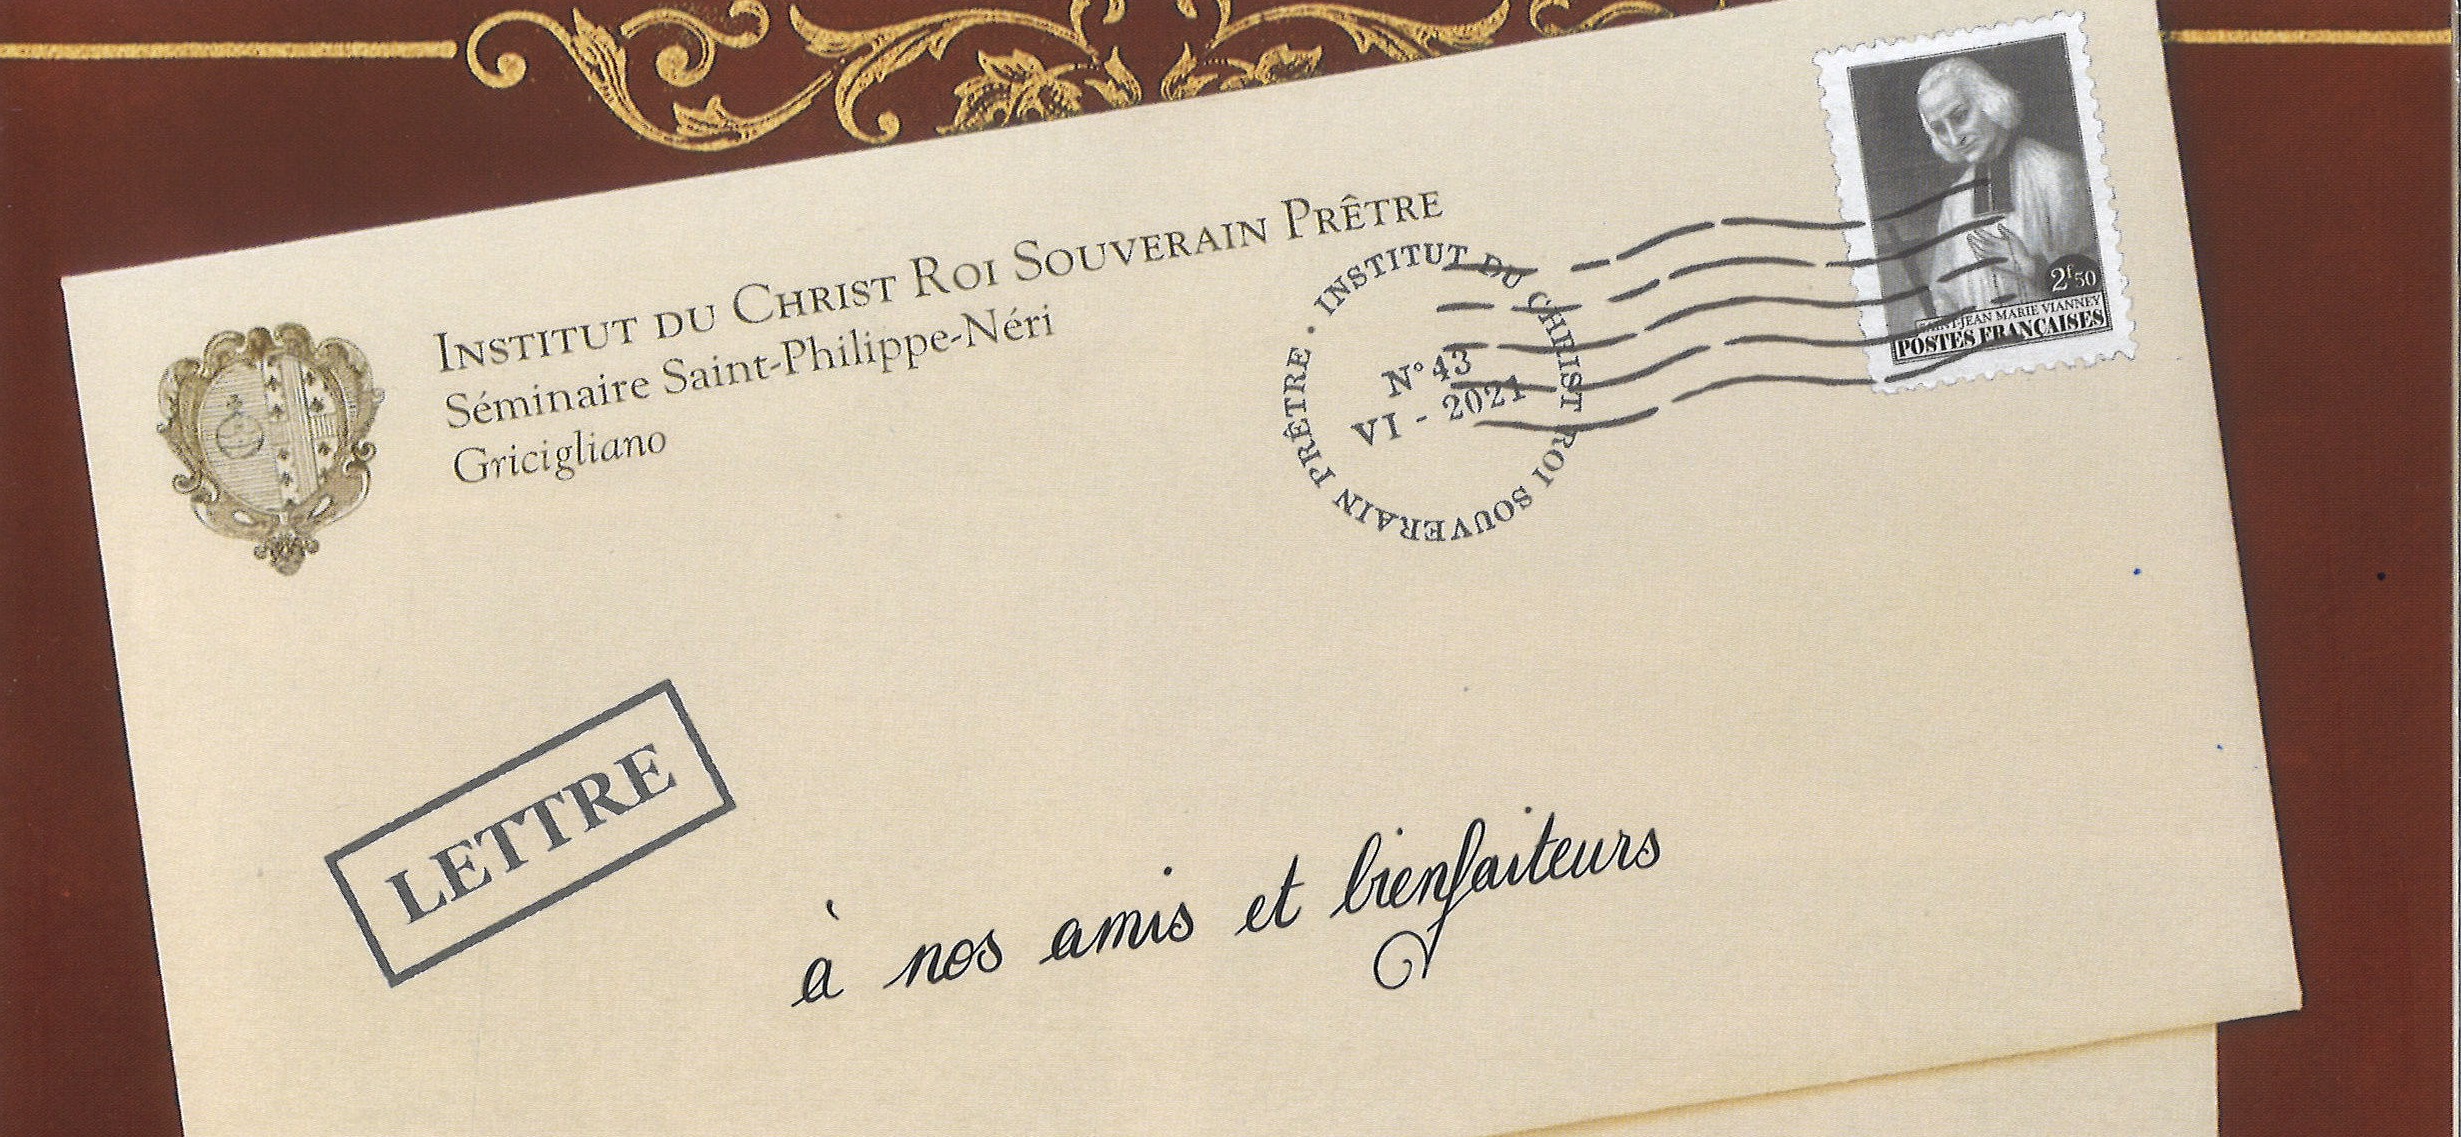 INSTITUT DU CHRIST ROI SOUVERAIN PRÊTRE
Séminaire Saint-Philippe-Néri
Gricigliano
INSTITUT DU CHRIST ROI SOUVERAIN PRÊTRE ·
N° 43
VI - 2021
2f50
SAINT JEAN MARIE VIANNEY
POSTES FRANÇAISES
LETTRE
à nos amis et bienfaiteurs